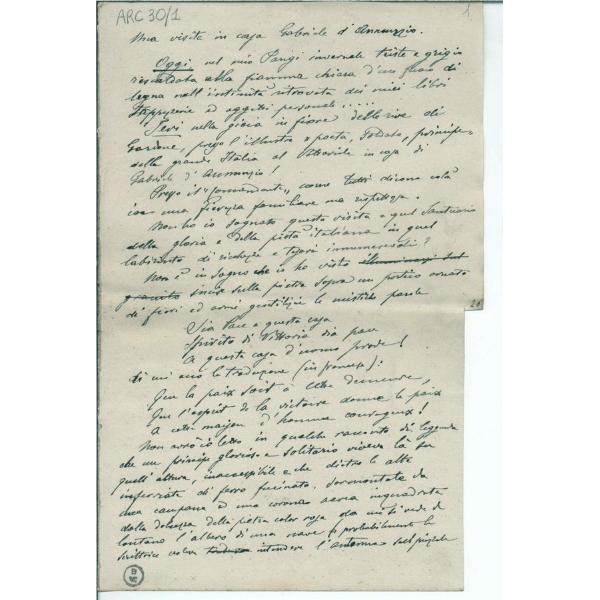 ARC 30/1
1.
Una visita in casa Gabriele d'Annunzio.
Oggi, nel mio Parigi invernale triste e grigio
riscaldata alla fiamma chiara d'un fuoco di
legna nell'intimità ritrovata dei miei libri
tappezzerie ed oggetti personali.....
Ieri nella gioia in fiore delle rive di
Gardone, presso l'illustre poeta, Soldato, principe
della grande Italia al Vittoriale in casa di
Gabriele d'Annunzio!
Presso il "Comandante", come tutti dicono colà
con una fierezza familiare ma rispettosa.
Non ho io sognato questa visita a quel Santuario
della gloria e della pietà italiana in quel
labirinto di ricchezze e tesori innumerevoli?
Non è in sogno che io ho visto
granito incise sulla pietra sopra un portico ornato
di fiori ed armi gentilizie le mistiche parole
Sia Pace a questa casa
Spirito di Vittoria dia pace
A questa casa d'uomo prode!
di cui ecco la traduzione (in francese):
Que la paix soit à cette demeure,
Que l'esprit de la victoire donne la paix
A cette maison d'homme courageux!
Non avrò io letto in qualche racconto di leggenda
che un principe glorioso e solitario viveva la su
quell'altura, inaccessibile e che dietro le alte
inferriate di ferro fucinato, sormontate da
una campana ed una corona aerea inquadrata
dalla dolcezza della pietra color rosa da cui si vede di
lontano l'albero di una nave (probabilmente la
scrittrice voleva intendere l'antenna sul piazzale